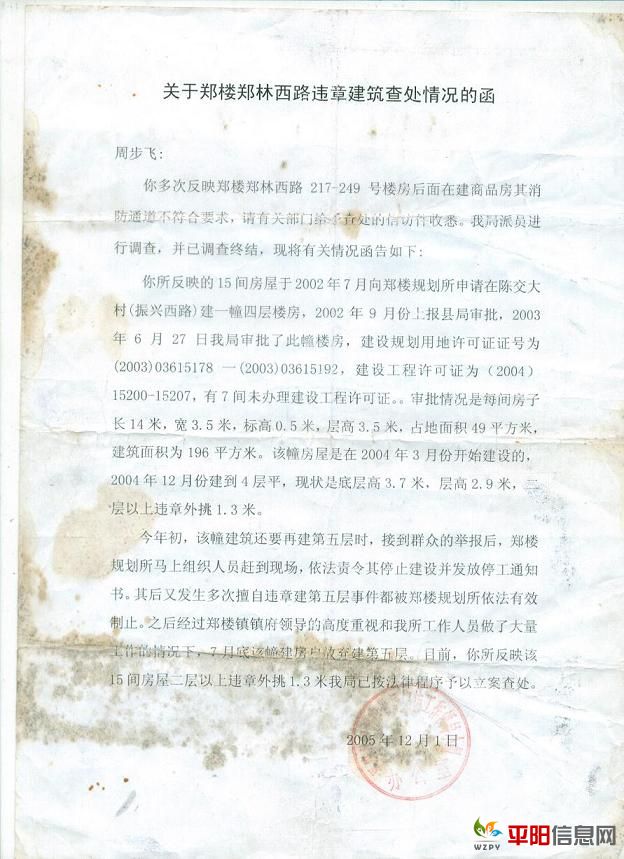 关于郑楼郑林西路违章建筑查处情况的函
周步飞:
你多次反映郑楼郑林西路 217-249 号楼房后面在建商品房其消
防通道不符合要求，请有关部门给予查处的信访件收悉。我局派员进
行调查，并已调查终结，现将有关情况函告如下:
你所反映的 15 间房屋于 2002 年 7 月向郑楼规划所申请在陈交大
村(振兴西路)建一幢四层楼房，2002 年 9 月份上报县局审批，2003
年 6 月 27 日我局审批了此幢楼房，建设规划用地许可证证号为
(2003)03615178 一(2003)03615192，建设工程许可证为（2004）
15200-15207，有 7 间未办理建设工程许可证。。审批情况是每间房子
长 14 米，宽 3.5 米，标高 0.5 米，层高 3.5 米，占地面积 49 平方米，
建筑面积为 196 平方米。该幢房屋是在 2004 年 3 月份开始建设的，
2004 年 12 月份建到 4 层平，现状是底层高 3.7 米，层高 2.9 米，二
层以上违章外挑 1.3 米。
今年初，该幢建筑还要再建第五层时，接到群众的举报后，郑楼
规划所马上组织人员赶到现场，依法责令其停止建设并发放停工通知
书。其后又发生多次擅自违章建第五层事件都被郑楼规划所依法有效
制止。之后经过郑楼镇镇府领导的高度重视和我所工作人员做了大量
工作的情况下，7 月底该幢建房户放弃建第五层。目前，你所反映该
15 间房屋二层以上违章外挑 1.3 米我局已按法律程序予以立案查处。
2005 年 12 月 1 日
办公室
WZPY 平阳信息网